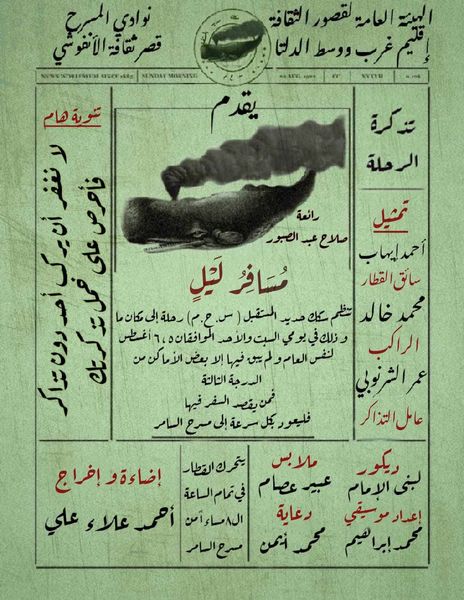 الهيئة العامة لقصور الثقافة
إقليم غرب ووسط الدلتا
نوادي المسرح
قصر ثقافة الأنفوشي
SUNDAY MORNING
يقدم
رائعة
صلاح عبد الصبور
مُسَافِرُ لَيْلٍ
تنظم سكك حديد المستقبل (س.ح.م) رحلة إلى مكان ما
وذلك في يومي السبت والأحد الموافقان ٥، ٦ أغسطس
لنفس العام ولم يتبق فيها إلا بعض الأماكن من
الدرجة الثالثة
فمن يقصد السفر فيها
فليعود بكل سرعة إلى مسرح السامر
تذكرة
الرحلة
تمثيل
أحمد إيهاب
سائق القطار
محمد خالد
الراكب
عمر الشرنوبي
عامل التذاكر
تنويه هام
لا نغفر أن يركب أحد دون تذاكر
فأحرص على حمل تذكرتك
ديكور
لبنى الإمام
إعداد موسيقي
محمد إبراهيم
ملابس
عبير عصام
دعاية
محمد أيمن
يتحرك القطار
في تمام الساعة
ال٨ مساءً من
مسرح السامر
إضاءة و إخراج
أحمد علاء علي